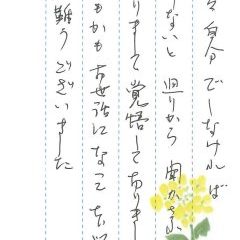 自分でしなければ
ないと 周りから 聞かされ
りまして 覚悟しておりまし
もかもお世話になって
難うございました